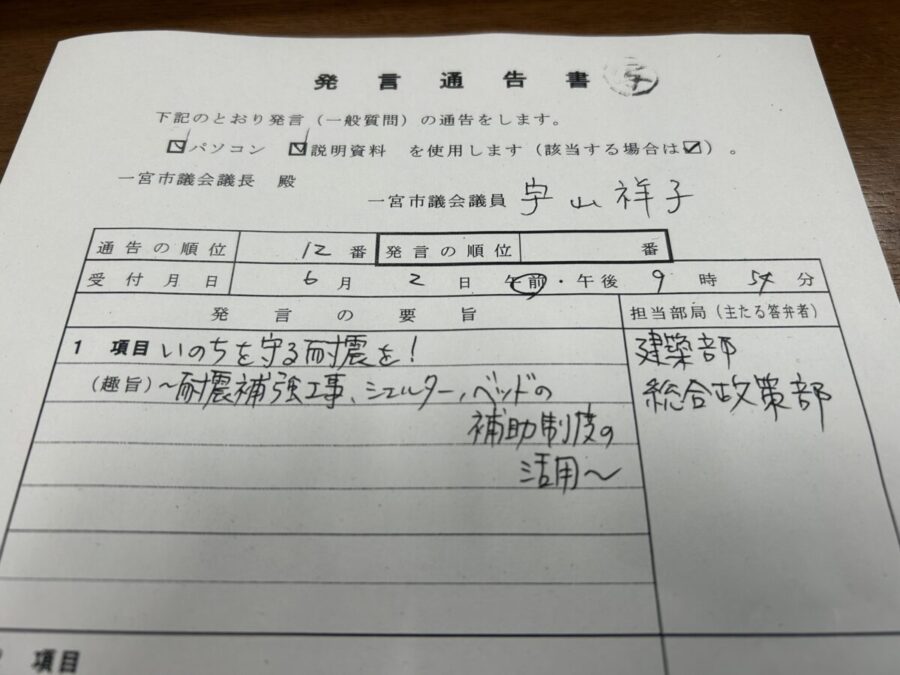 発言通告書
下記のとおり発言(一般質問)の通告をします。
☑パソコン ☑説明資料 を使用します(該当する場合は☑)。
一宮市議会議長 殿
一宮市議会議員 宇山祥子
通告の順位 12番 発言の順位 番
受付月日 6月 2日 午前・午後 9時 54分
発言の要旨 担当部局(主たる答弁者)
1 項目 いのちを守る耐震を!
建築部
(趣旨)~耐震補強工事、シェルター、ベッドの
総合政策部
補助制度の
活用~
項目